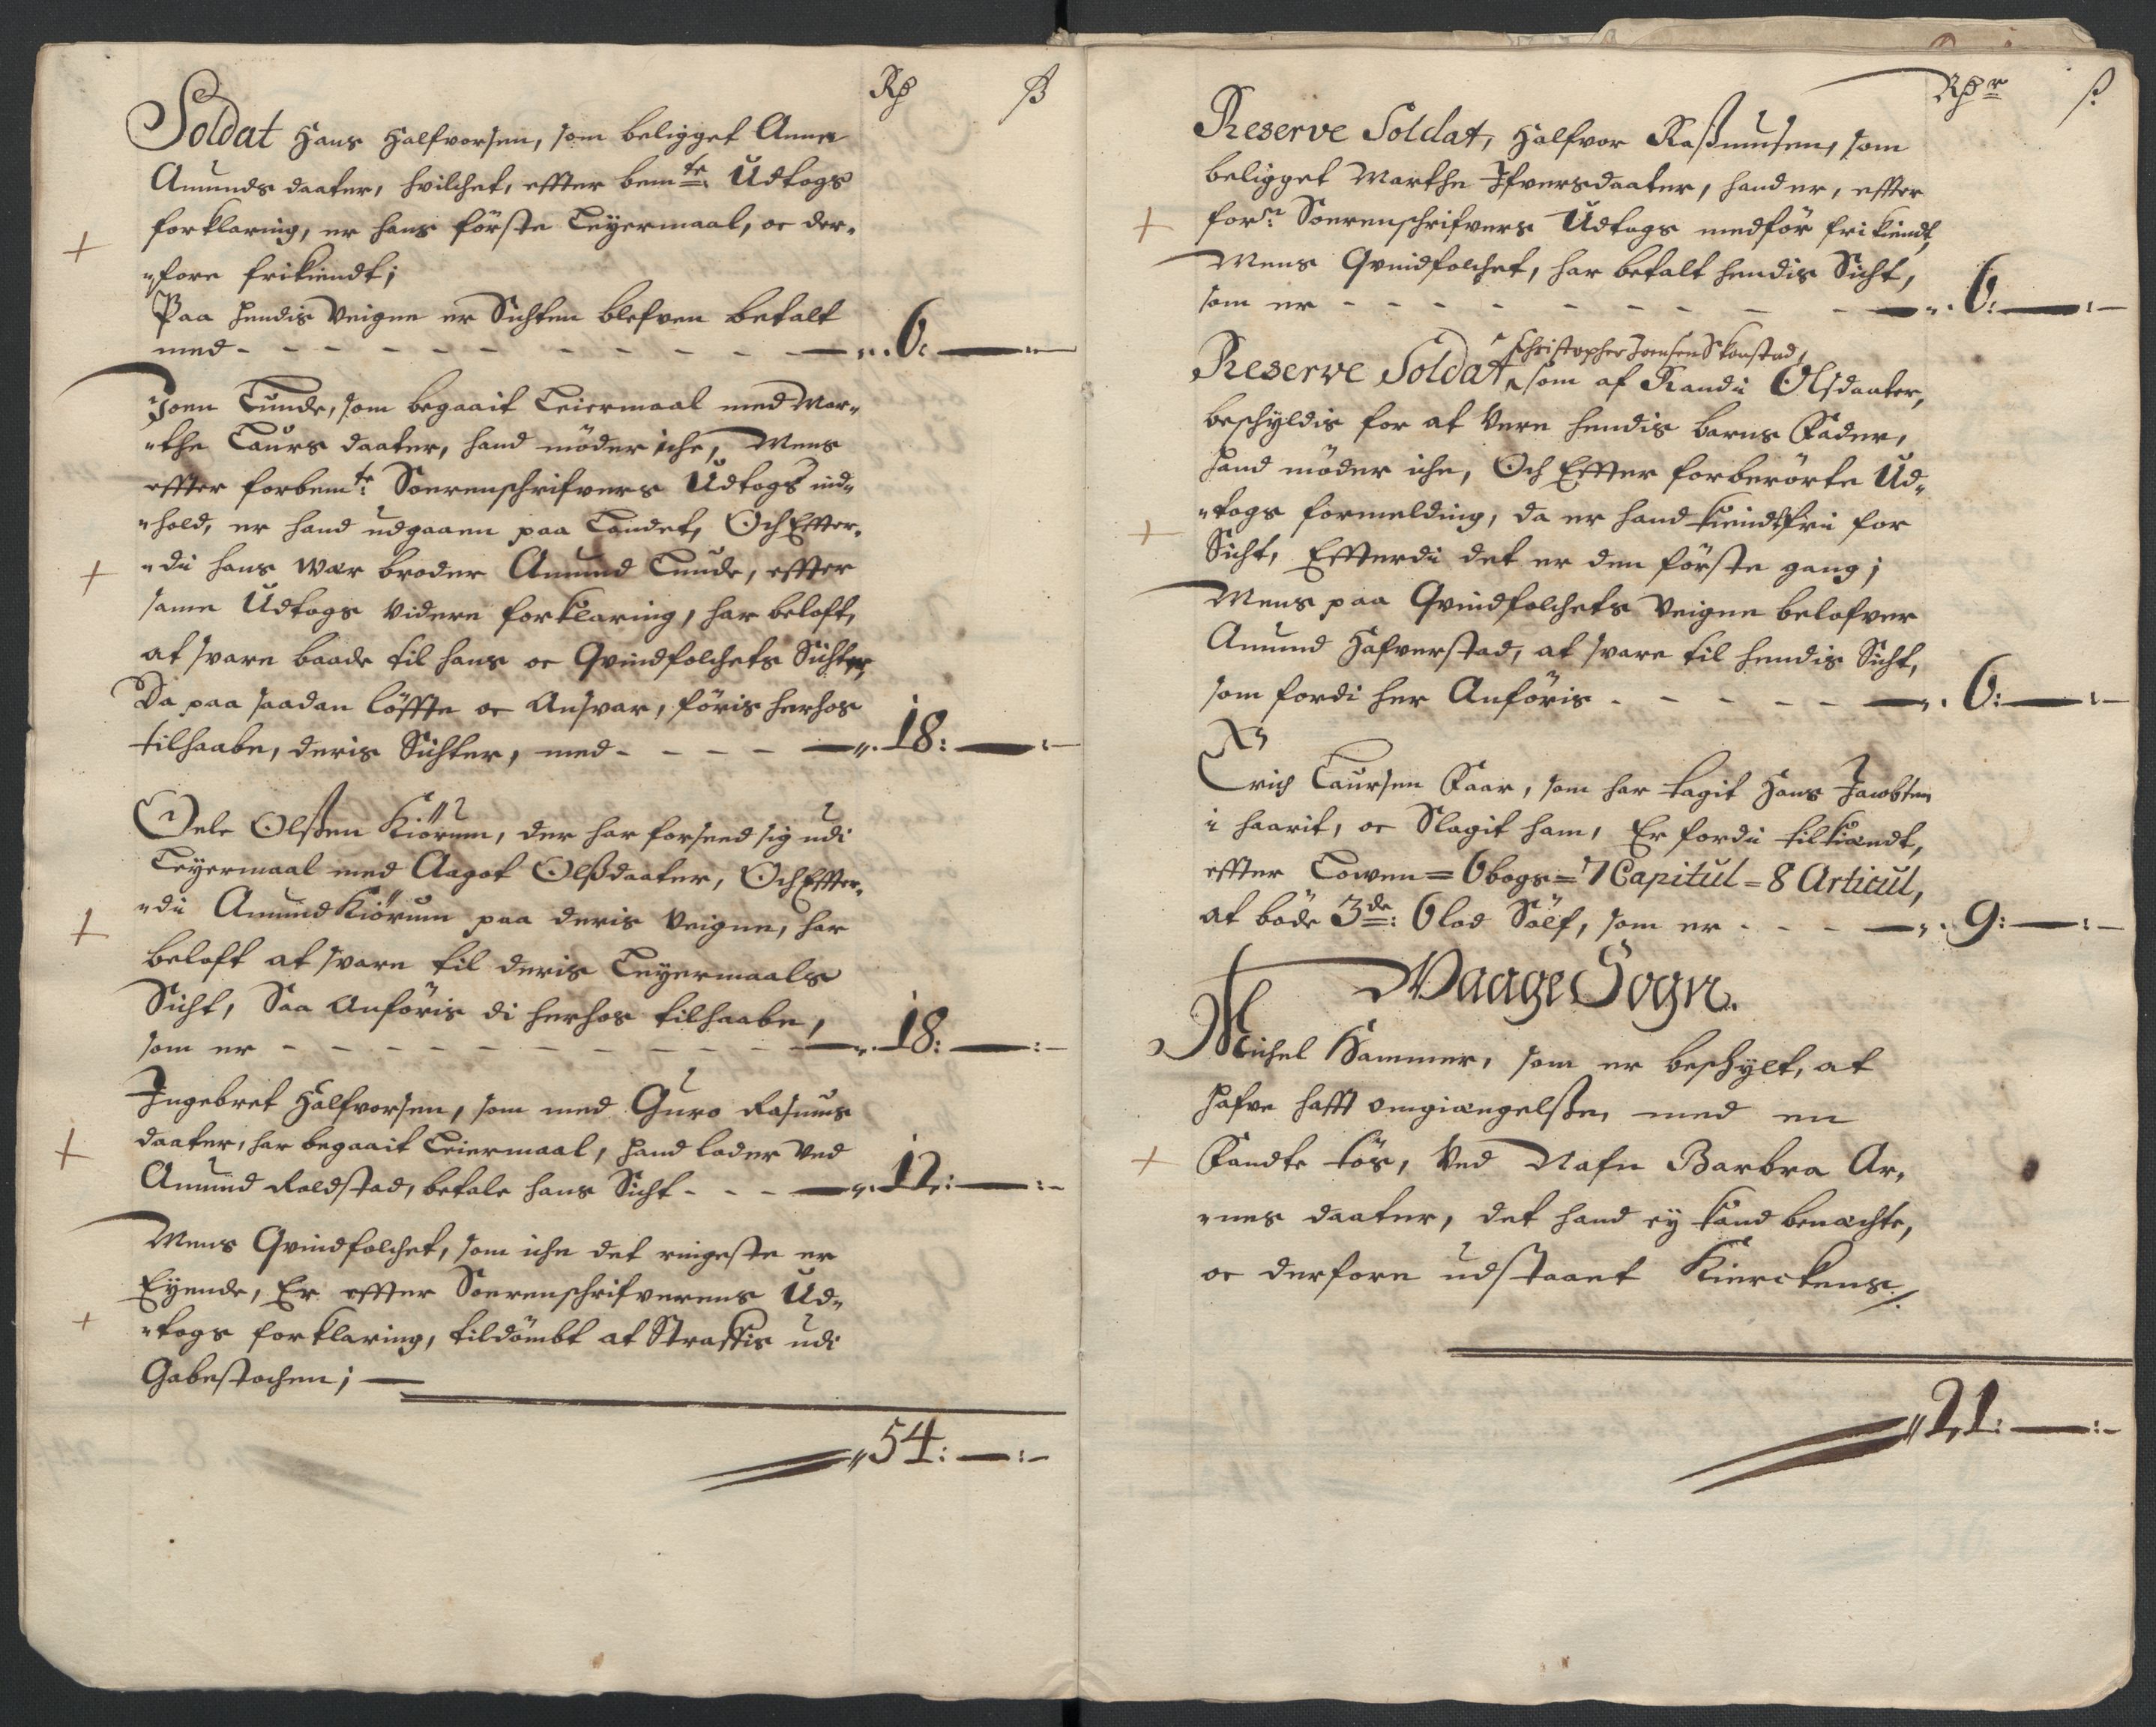 Rß ß
Soldat Hans Halfvorsen, som beligget Anne
Amunds daater, hvilchet, effter bemte: Udtogs
forklaring, er hans förste Leyermaal, oc der-
fore frikiendt;
Paa hendis Veigne er Sichten blefven betalt
med - - - - - - - - - 6: —
Joen Tunde, som begaait Leiermaal med Mar-
the Laurs daater, hand möder iche, Mens
effter forbemte: Sorenschrifvers Udtogs ind-
hold, er hand udgaaen paa Landet, Och Effter-
di hans Wær broder Amund Tunde, effter
same Udtogs videre forklaring, har beloft,
at svare baade til hans oc Qvindfolchets Sichter,
Da paa saadan löffte oc Ansvar, föris herhos
tilhaabe, deris Sichter, med - - - - 18: —
Oele Olßen Kiörum, der har forseed sig udi
Leyermaal med Aagot Olßdaater, Och Effter-
di Amund Kiörum paa deris Veigne, har
beloft at svare til deris Leyermaals
Sicht, Saa Anföris di herhos tilhaabe,
som er - - - - - - - - - 18: —
Ingebret Halfvorsen, som med Guro Rasmus
daater, har begaait Leiermaal, hand lader Ved
Amund Roldstad, betale hans Sicht - - - 12: —
Mens Qvindfolchet, som iche det ringeste er
Eyende, Er effter Sorenschrifverens Ud-
togs forklaring, tildömbt at Straffis udi
Gabestochen; —
54: —
Rßr ß
Reserve Soldat, Halfvor Raßmusen, som
beligget Marthe Ifversdaater, hand er, effter
forn: Sorenschrifvers Udtogs medför frikiendt,
Mens Qvindfolchet, har betalt hendis Sicht,
som er - - - - - - - - 6: —
Christopher Joensen Skonstad,
Reserve Soldat, som af Randi Olsdaater,
beschyldis for at Vere hendis barns Fader,
hand möder iche, Och Effter forberörte Ud-
togs formelding, da er hand kiendt fri for
Sicht, Effterdi det er den förste gang;
Mens paa Qvindfolchets Veigne belofver
Amund Hafverstad, at svare til hendis Sicht,
som fordi her Anföris - - - - - 6: —
Erich Laursen Faar, som har tagit Hans Jacobsen
i haarit, oc Slagit ham, Er fordi tilkiendt,
effter Lowen = 6 bogs = 7 Capitul = 8 Articul,
at böde 3de: 6 lod Sölf, som er - - - 9: —
Waage Sogn.
Michel Hammer, som er beschylt, at
hafve hafft omgiængelße, med en
Fandte tös, Ved Nafn Barbra Ar-
nes daater, det hand ey kand benachte,
oc derfore udstaaet Kierckens /.
21: —